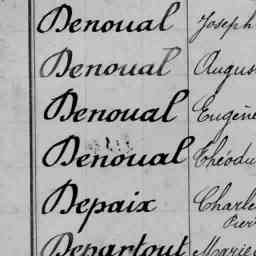 Denoual Joseph
Denoual Augus
Denoual Eugène
Denoual Théodu
Depaix Charle
Pierr
Departout Marie